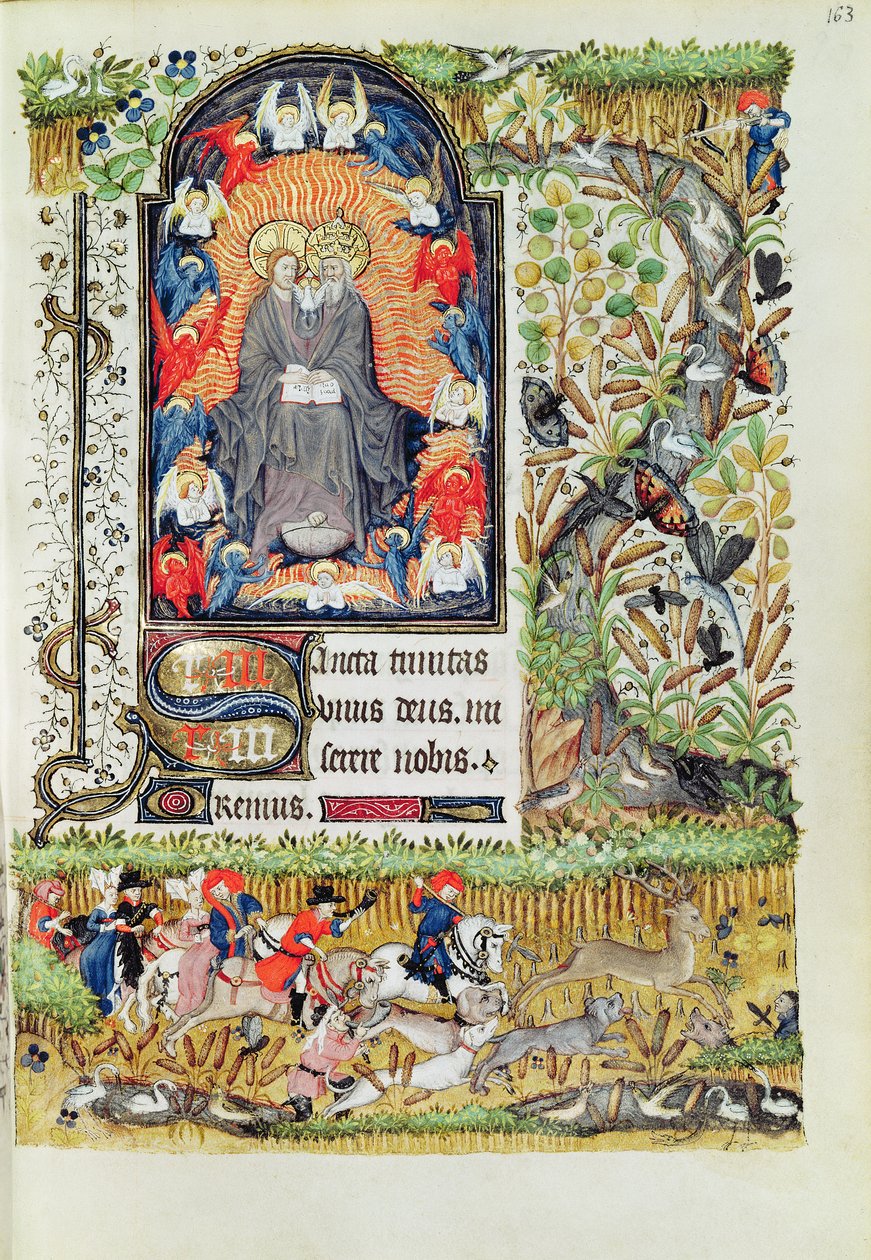 163
Sancta trinitas
vnus deus. mi
serere nobis.
Oremus.